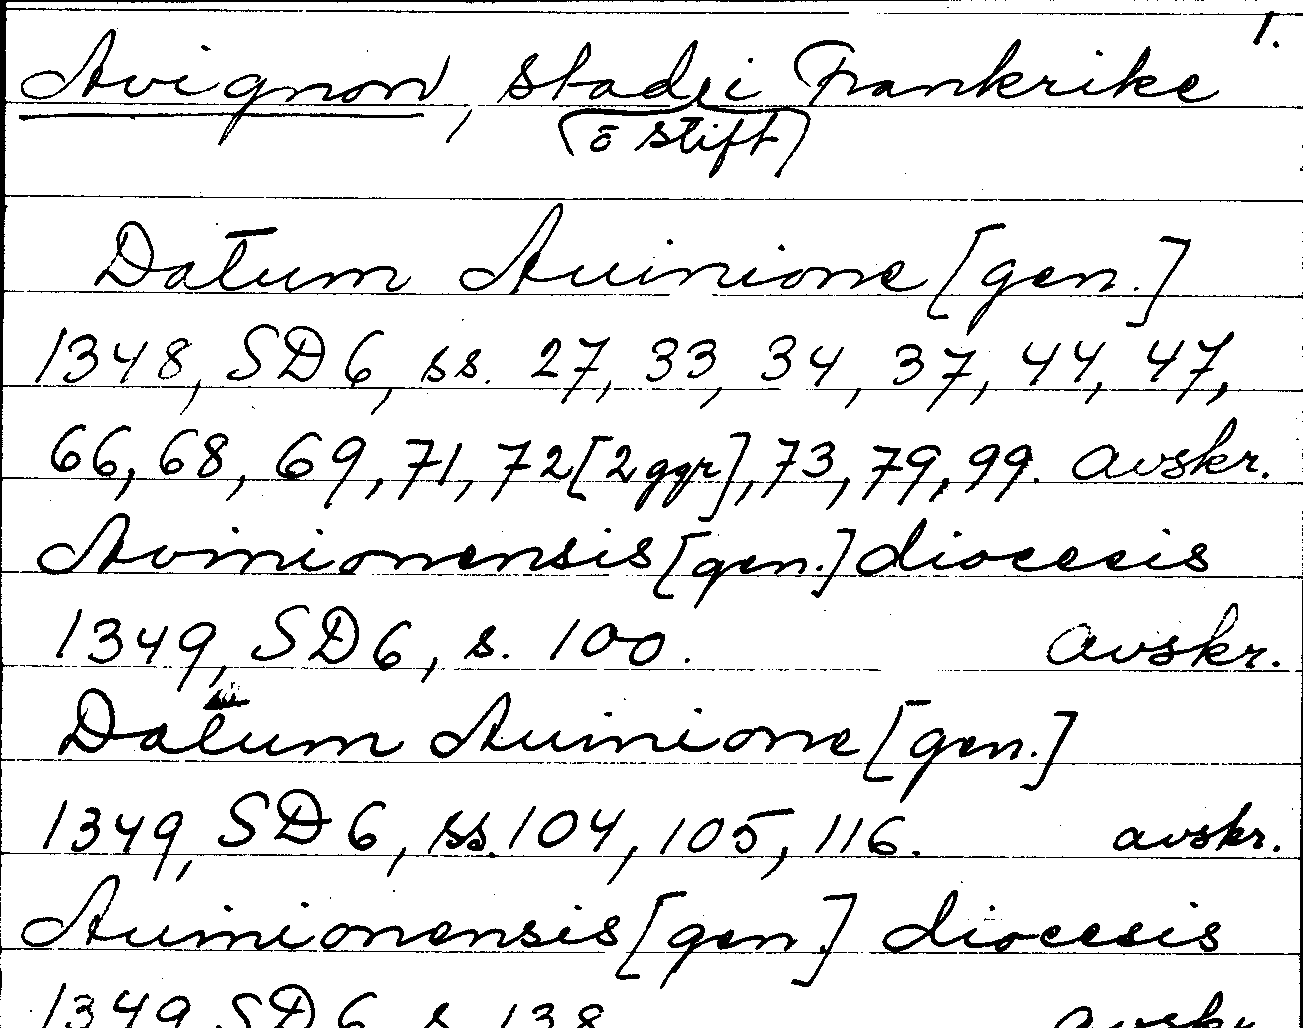 1.
Avignon, stad i Frankrike
(ō stift)
Datum Auinione [gen.]
1348, SD 6, ss. 27, 33, 34, 37, 44, 47,
66, 68, 69, 71, 72 [2 ggr], 73, 79, 99. avskr.
Avinionensis [gen.] diocesis
1349, SD 6, s. 100. avskr.
Datum Auinione [gen.]
1349, SD 6, ss. 104, 105, 116. avskr.
Auinionensis [gen.] diocesis
1349 SD 6 s. 138 avskr.